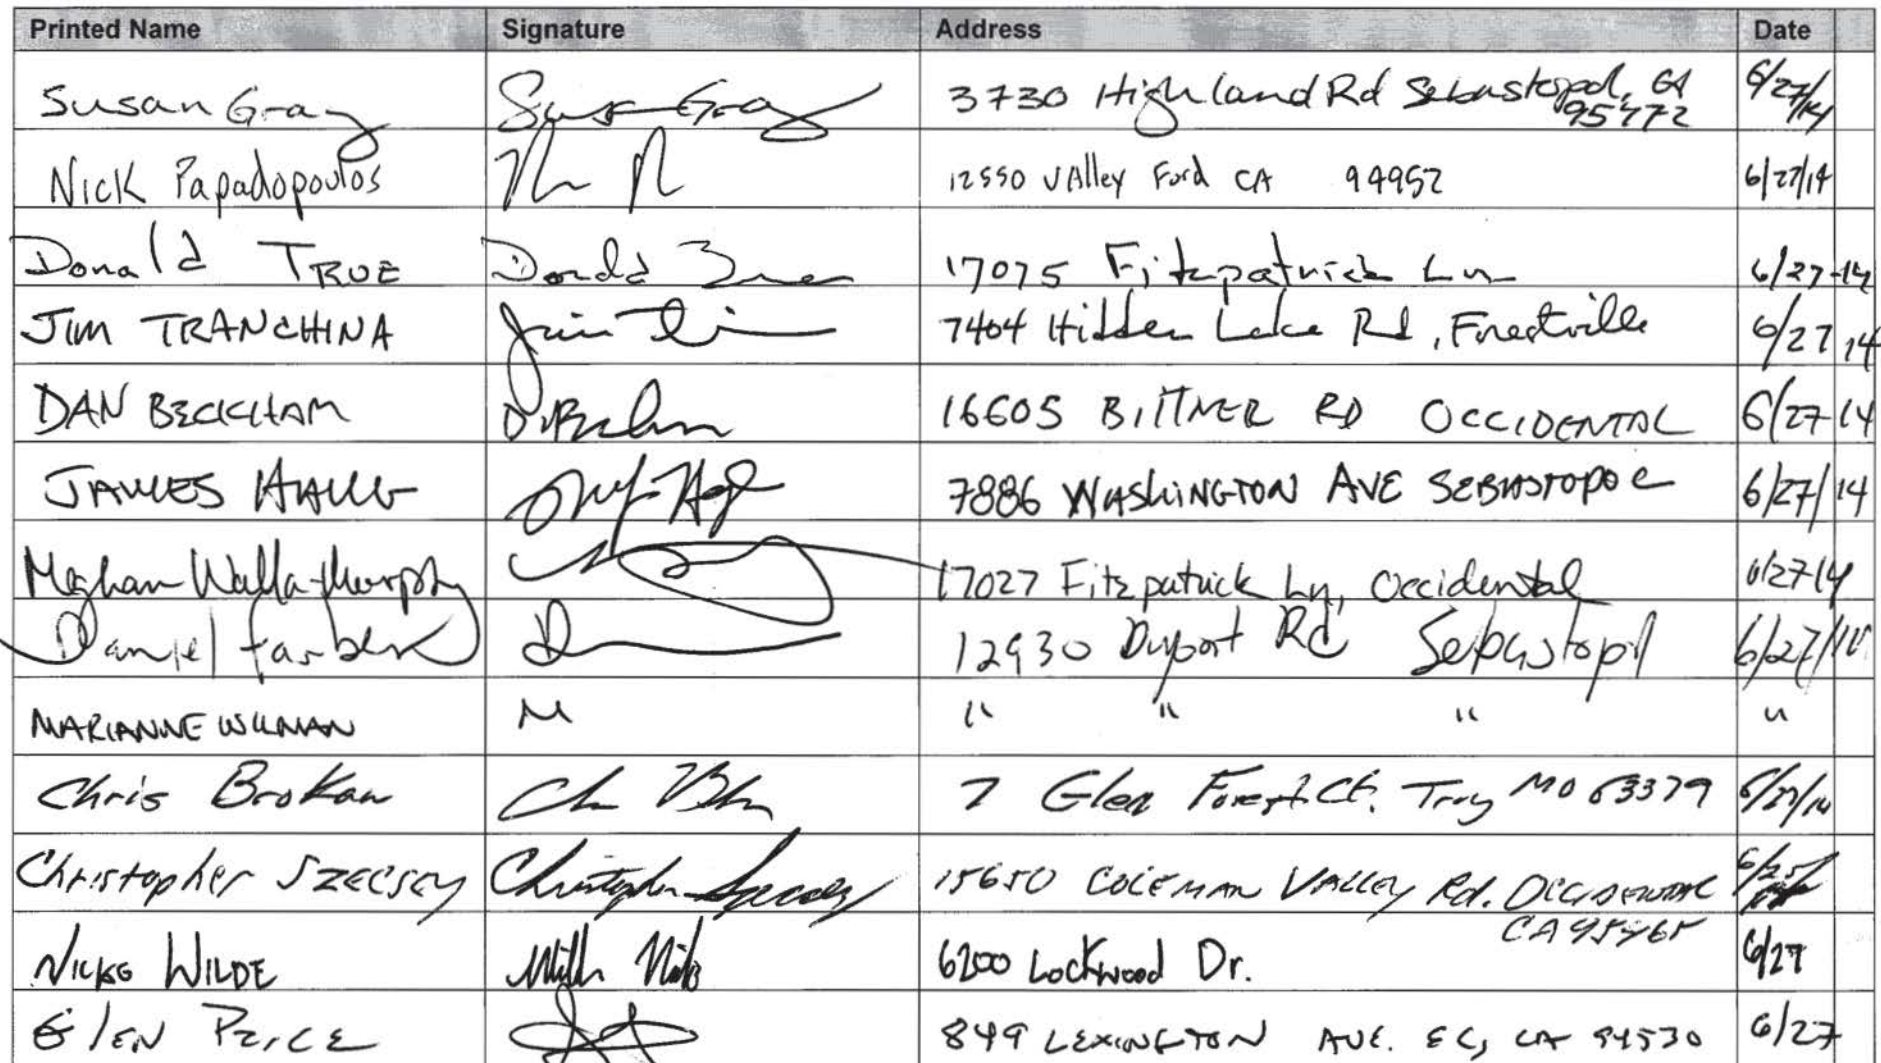 Printed Name Signature Address Date
Susan Gray Susan Gray 3730 Highland Rd Sebastopol, CA 95472 6/27/14
Nick Papadopoulos 12550 Valley Ford CA 94952 6/27/14
Donald TRUE Donald True 17075 Fitzpatrick Ln 6/27-14
JIM TRANCHINA Jim 7404 Hidden Lake Rd, Forestville 6/27 14
DAN BECKHAM 16605 BITTNER RD OCCIDENTAL 6/27-14
JAMES HAUG 7886 WASHINGTON AVE SEBASTOPOL 6/27/14
Meghan Walla-Murphy 17027 Fitzpatrick Ln, Occidental 6/27 14
Daniel Farber 12930 Dupont Rd Sebastopol 6/27/14
MARIANNE WILLMAN M " " " "
Chris Brokaw 7 Glen Forest Ct. Troy MO 63379 6/27/14
Christopher SZECSEY Christopher Szecsey 15650 COLEMAN VALLEY Rd. OCCIDENTAL
CA 95465
WILDE 6200 Lockwood Dr. 6/27
GlEN PRICE 849 LEXINGTON AVE. EC, CA 94530 6/27